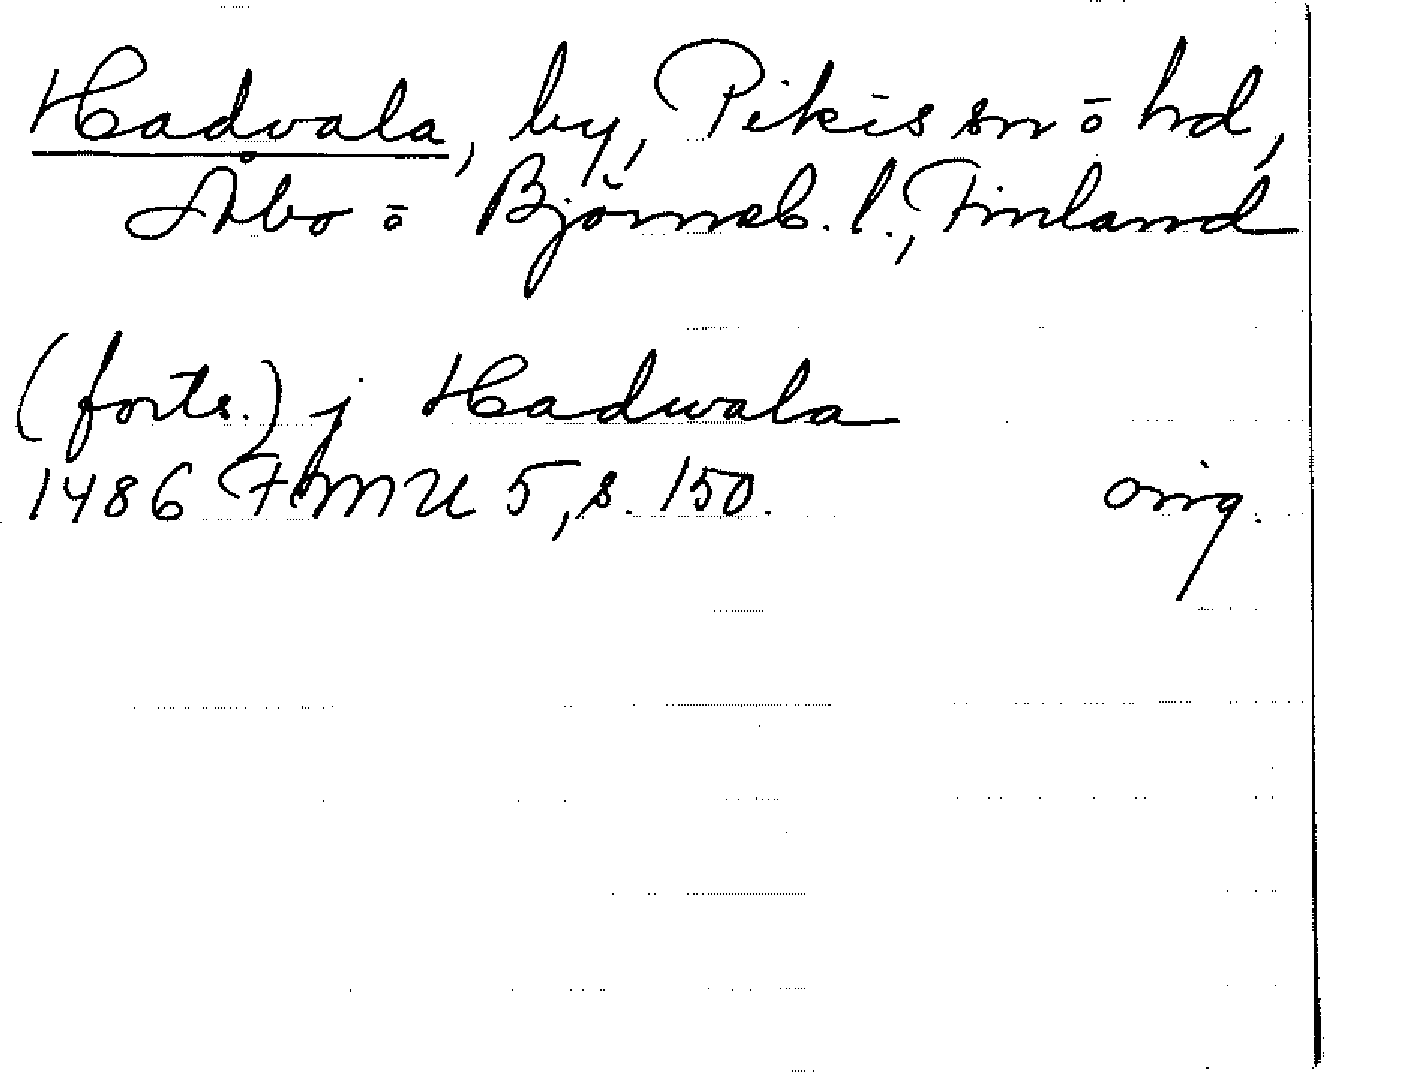 Hadvala, by, Pikis sn ö hd,
Åbo ö Björneb. l., Finland
(forts.) j Hadwala
1486 FMU 5, s. 150. orig.